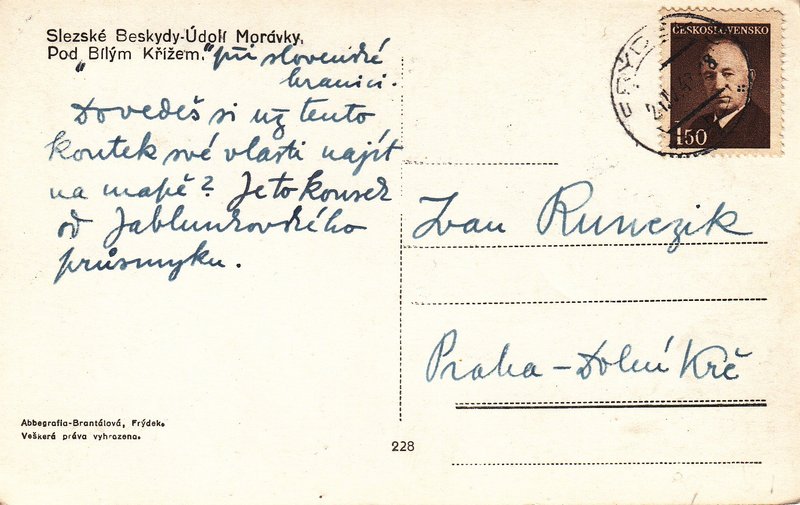 Slezské Beskydy-Údolí Morávky,
Pod Bílým Křížem.
" " při slovenské
hranici.
Dovedeš si už tento
koutek své vlasti najít
na mapě? Je to kousek
od Jablunkovského
průsmyku.
ČESKOSLOVENSKO
1.50
Ivan Runczik
Praha – Dolní Krč
Abbegrafia-Brantálová, Frýdek.
Veškerá práva vyhrazena.
228